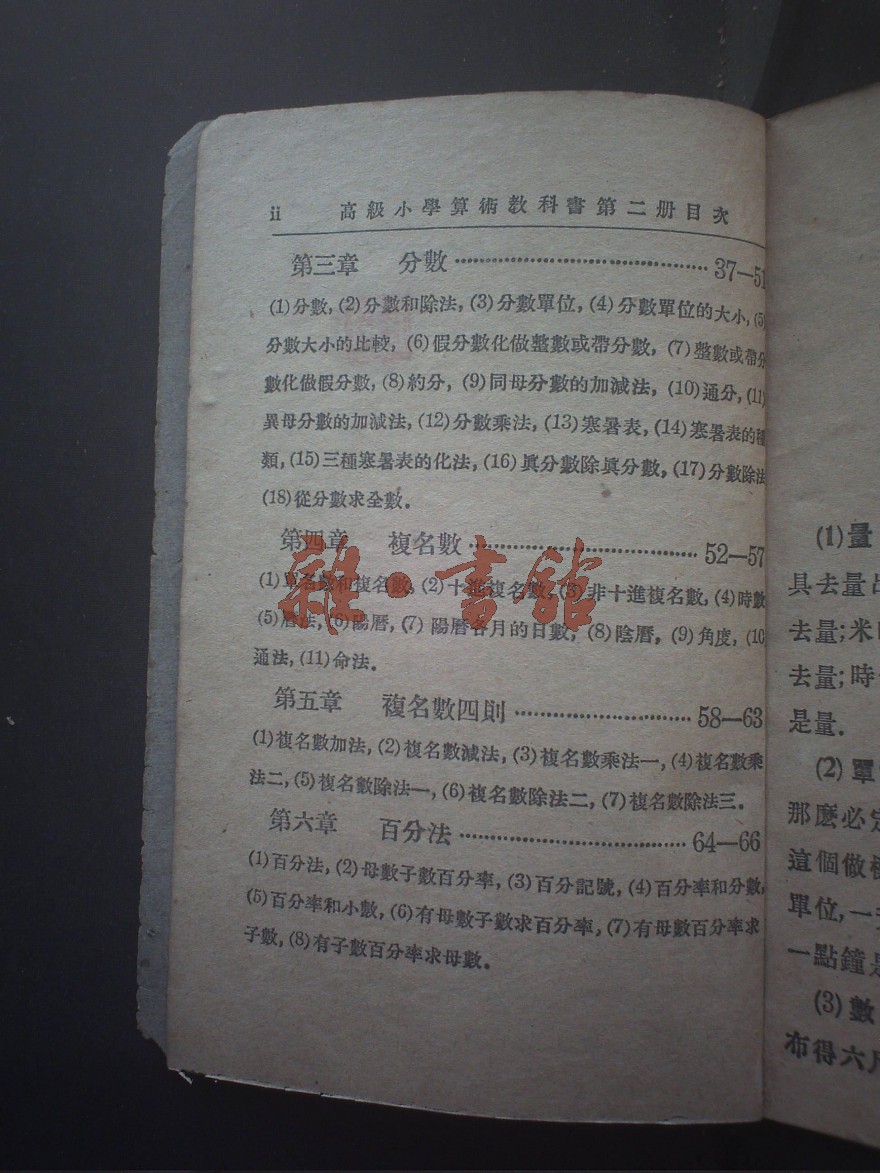 ii 高級小學算術教科書第二册目次
第三章 分數 37—51
(1)分數, (2)分數和除法, (3)分數單位, (4)分數單位的大小, (5)
分數大小的比較, (6)假分數化做整數或帶分數, (7)整數或帶分
數化做假分數, (8)約分, (9)同母分數的加減法, (10)通分, (11)
異母分數的加減法, (12)分數乘法, (13)寒暑表, (14)寒暑表的種
類, (15)三種寒暑表的化法, (16)眞分數除眞分數, (17)分數除法
(18)從分數求全數.
第四章 複名數 52—57
(1)單名數和複名數, (2)十進複名數, (3)非十進複名數, (4)時數
(5)曆法, (6)陽曆, (7)陽曆各月的日數, (8)陰曆, (9)角度, (10)
通法, (11)命法.
第五章 複名數四則 58—63
(1)複名數加法, (2)複名數減法, (3)複名數乘法一, (4)複名數乘
法二, (5)複名數除法一, (6)複名數除法二, (7)複名數除法三.
第六章 百分法 64—66
(1)百分法, (2)母數子數百分率, (3)百分記號, (4)百分率和分數,
(5)百分率和小數, (6)有母數子數求百分率, (7)有母數百分率求
子數, (8)有子數百分率求母數.
雜·書館
(1)量
具去量
去量;米
去量;時
是量.
(2)單
那麽必定
這個做
單位,一
一點鐘是
(3)數
布得六尺